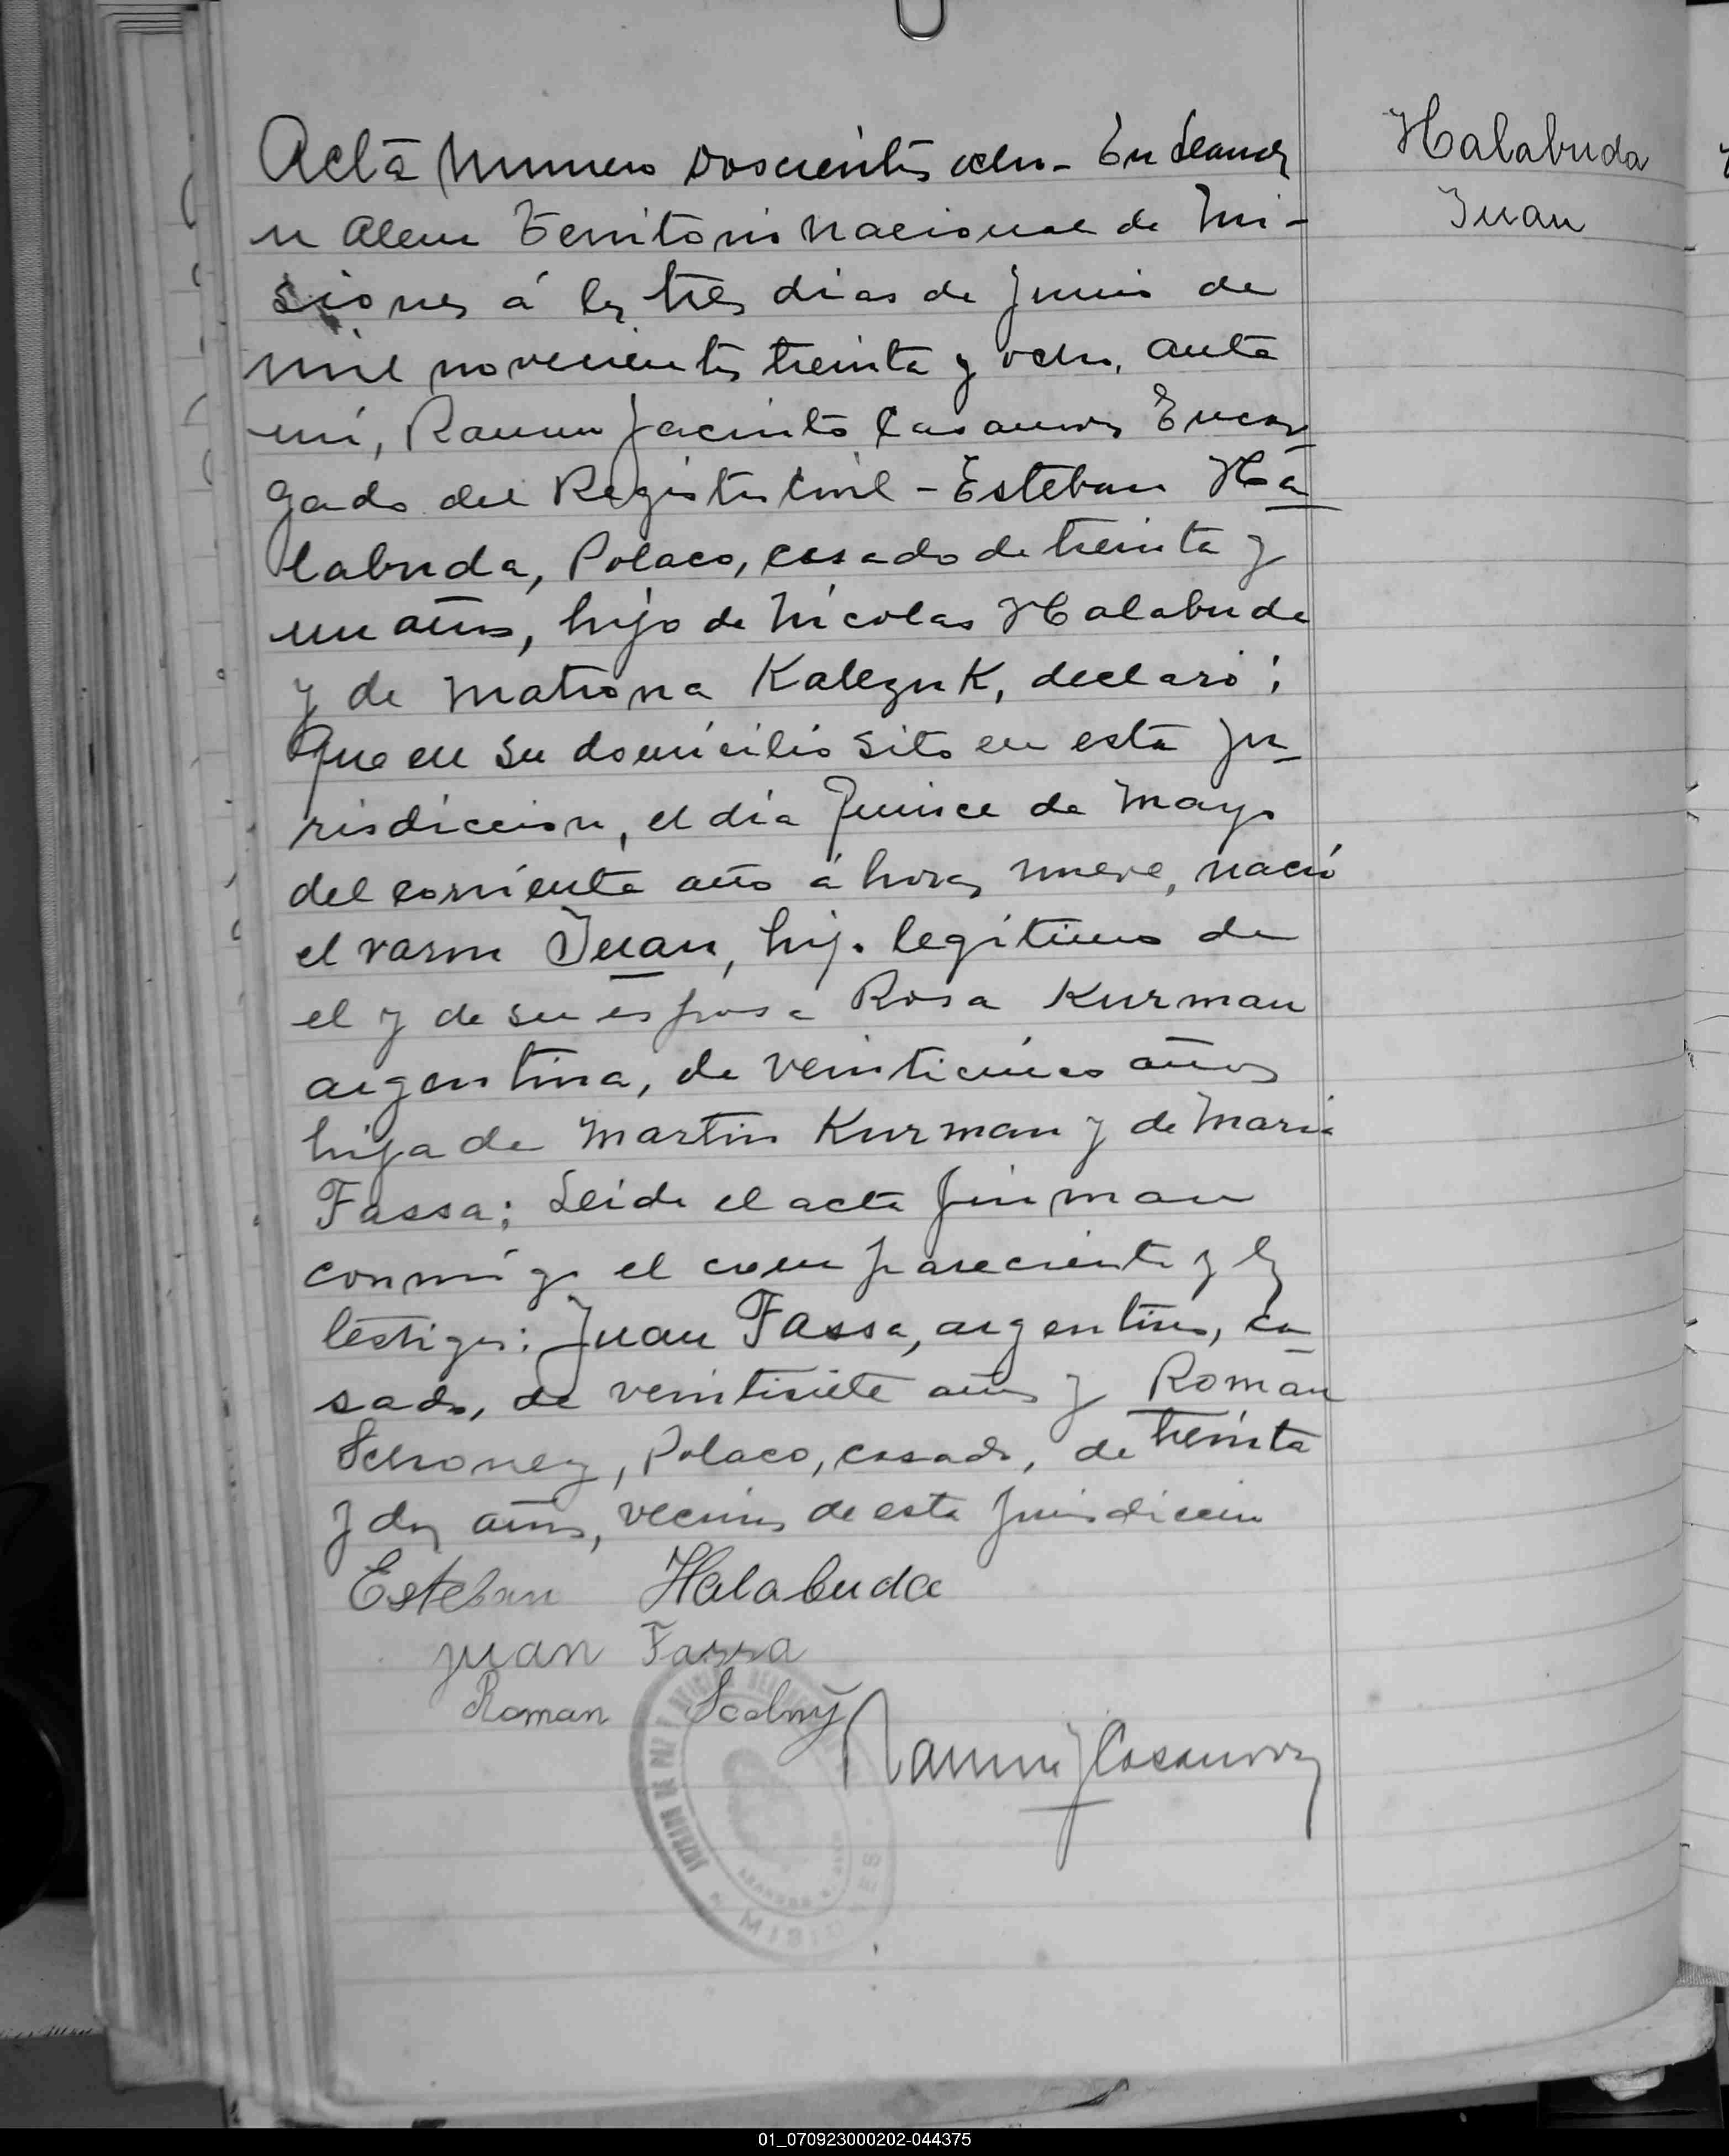 Halabuda
Juan
Acta Numero Doscientos ocho - En Leandr
n Alem Territorio Nacional de Mi-
siones á los tres dias de Junio de
mil novecientos treinta y ocho, ante
mi, Ramon Jacinto Casanova Encar
gado del Registro Civil - Esteban Ha
labuda, Polaco, casado de treinta y
un años, hijo de Nicolas Halabuda
y de Matrona Kalezuk, declaró:
Que en su domicilio sito en esta ju
risdiccion, el dia Quince de Mayo
del corriente año á horas nueve, nació
el varon Juan, hijo legitimo de
el y de su esposa Rosa Kurman
argentina, de veinticinco años
hija de Martin Kurman y de Maria
Fassa; Leida el acta firman
conmigo el compareciente y los
testigos: Juan Fassa, argentino, ca
sado, de veintisiete años y Roman
Schoney, Polaco, casado, de treinta
y dos años, vecinos de esta jurisdiccion
Esteban Halabuda
Juan Fassa
Roman
Ramon J Casanova
MISIONES
01_070923000202-044375